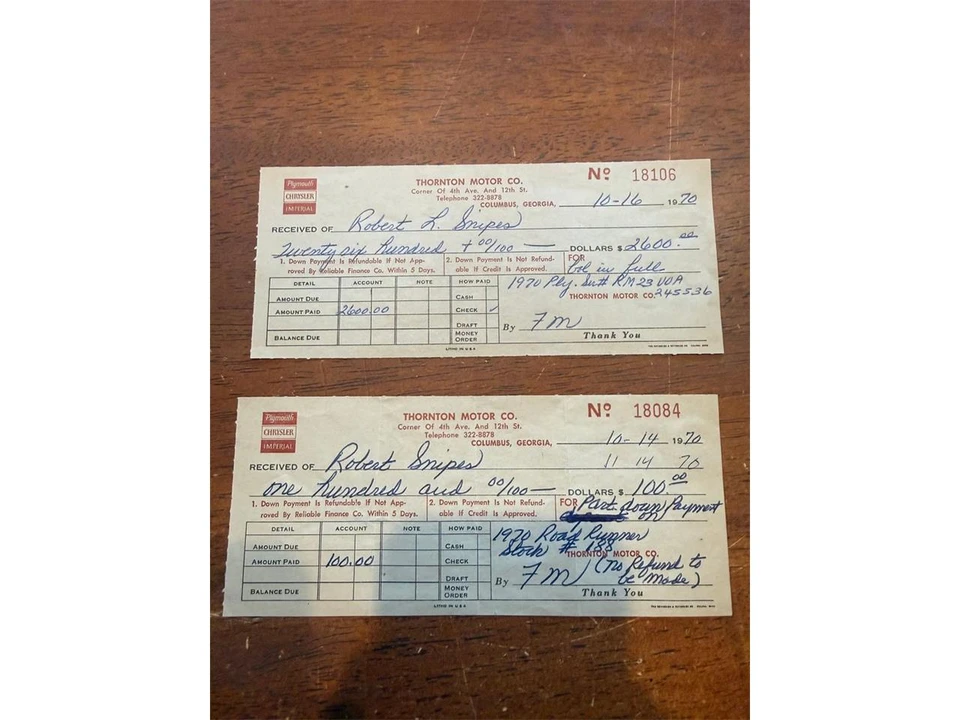 Plymouth
CHRYSLER
IMPERIAL
THORNTON MOTOR CO.
Corner Of 4th Ave. And 12th St.
Telephone 322-8878
COLUMBUS, GEORGIA, 10-16 1970
Nº 18106
RECEIVED OF Robert L. Snipes
Twenty six hundred + 00/100 — DOLLARS $ 2600.00
1. Down Payment Is Refundable If Not Approved By Reliable Finance Co. Within 5 Days.
2. Down Payment Is Not Refundable If Credit Is Approved.
FOR
bal in full
1970 Ply. Ser# RM23 VOA
245536
DETAIL ACCOUNT NOTE HOW PAID
AMOUNT DUE CASH
AMOUNT PAID 2600.00 CHECK ✓
DRAFT
BALANCE DUE MONEY ORDER
THORNTON MOTOR CO.
By FM
Thank You
LITHO IN U.S.A.
Plymouth
CHRYSLER
IMPERIAL
THORNTON MOTOR CO.
Corner Of 4th Ave. And 12th St.
Telephone 322-8878
COLUMBUS, GEORGIA, 10-14 1970
Nº 18084
11 14 70
RECEIVED OF Robert Snipes
one hundred and 00/100 — DOLLARS $ 100.00
1. Down Payment Is Refundable If Not Approved By Reliable Finance Co. Within 5 Days.
2. Down Payment Is Not Refundable If Credit Is Approved.
FOR Part down Payment
on
1970 Road Runner
Stock # 188
DETAIL ACCOUNT NOTE HOW PAID
AMOUNT DUE CASH
AMOUNT PAID 100.00 CHECK
DRAFT
BALANCE DUE MONEY ORDER
THORNTON MOTOR CO.
By FM (no Refund to
be made)
Thank You
LITHO IN U.S.A.